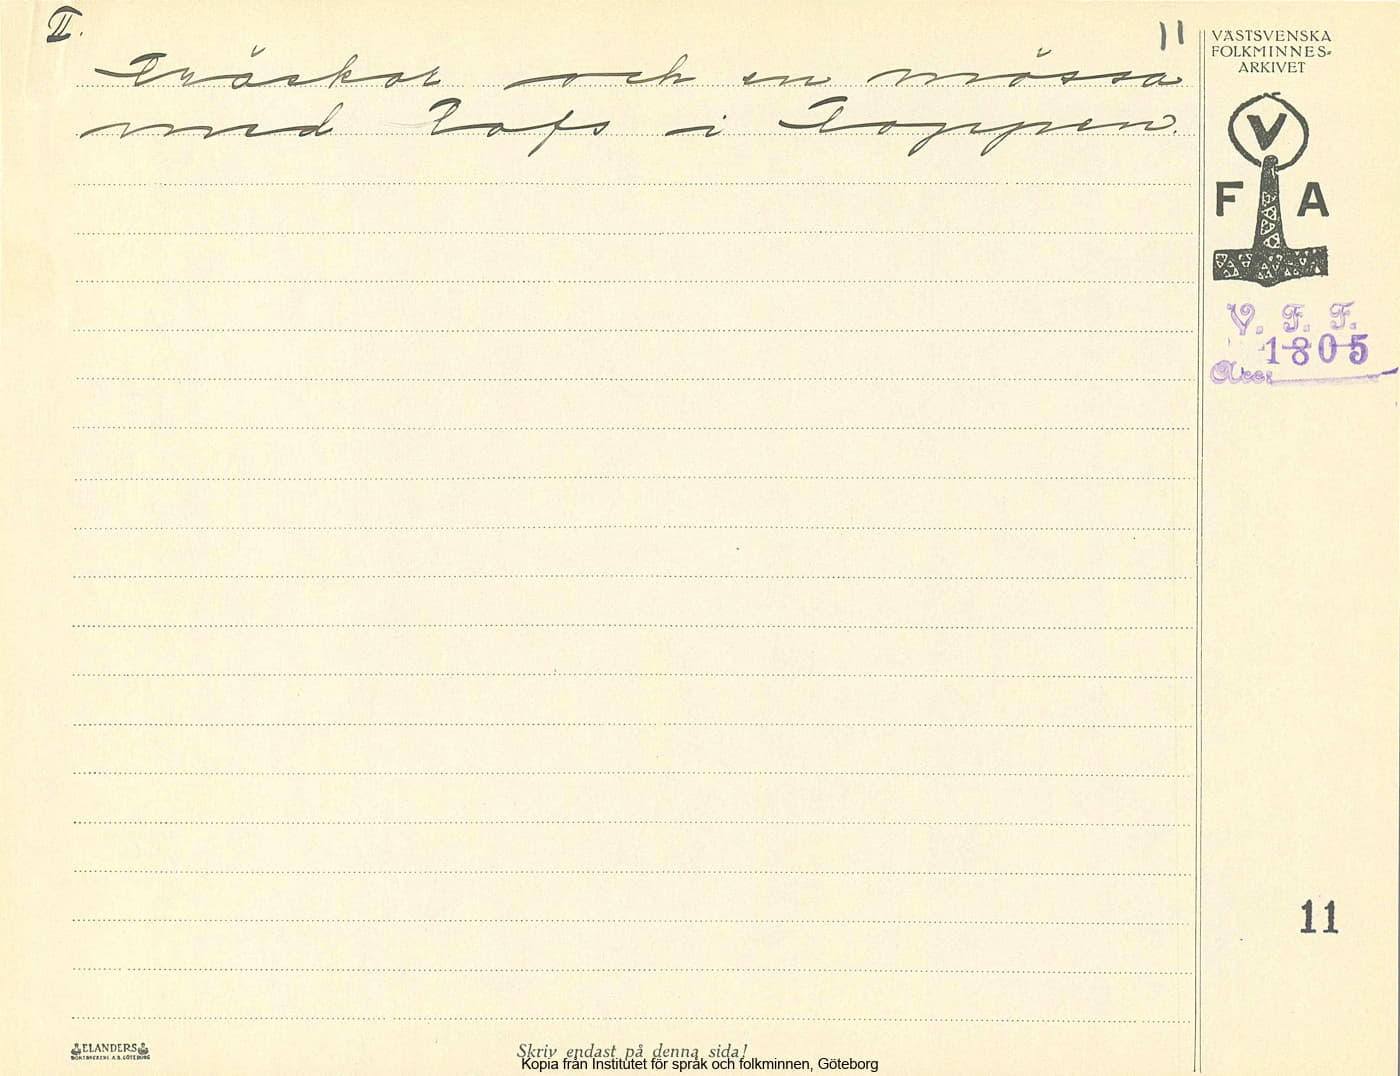 II.
11
Träskor och en mössa
med tofs i toppen.
VÄSTSVENSKA
FOLKMINNES-
ARKIVET
V
F A
V. F. F.
1805
Acc:
11
ELANDERS
BOKTRYCKERI A.B. GÖTEBORG
Skriv endast på denna sida!
Kopia från Institutet för språk och folkminnen, Göteborg